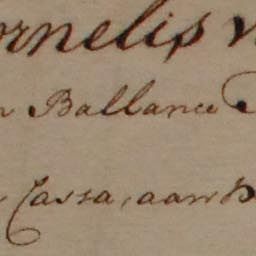 ornelis
n Ballance
Cassa, aan